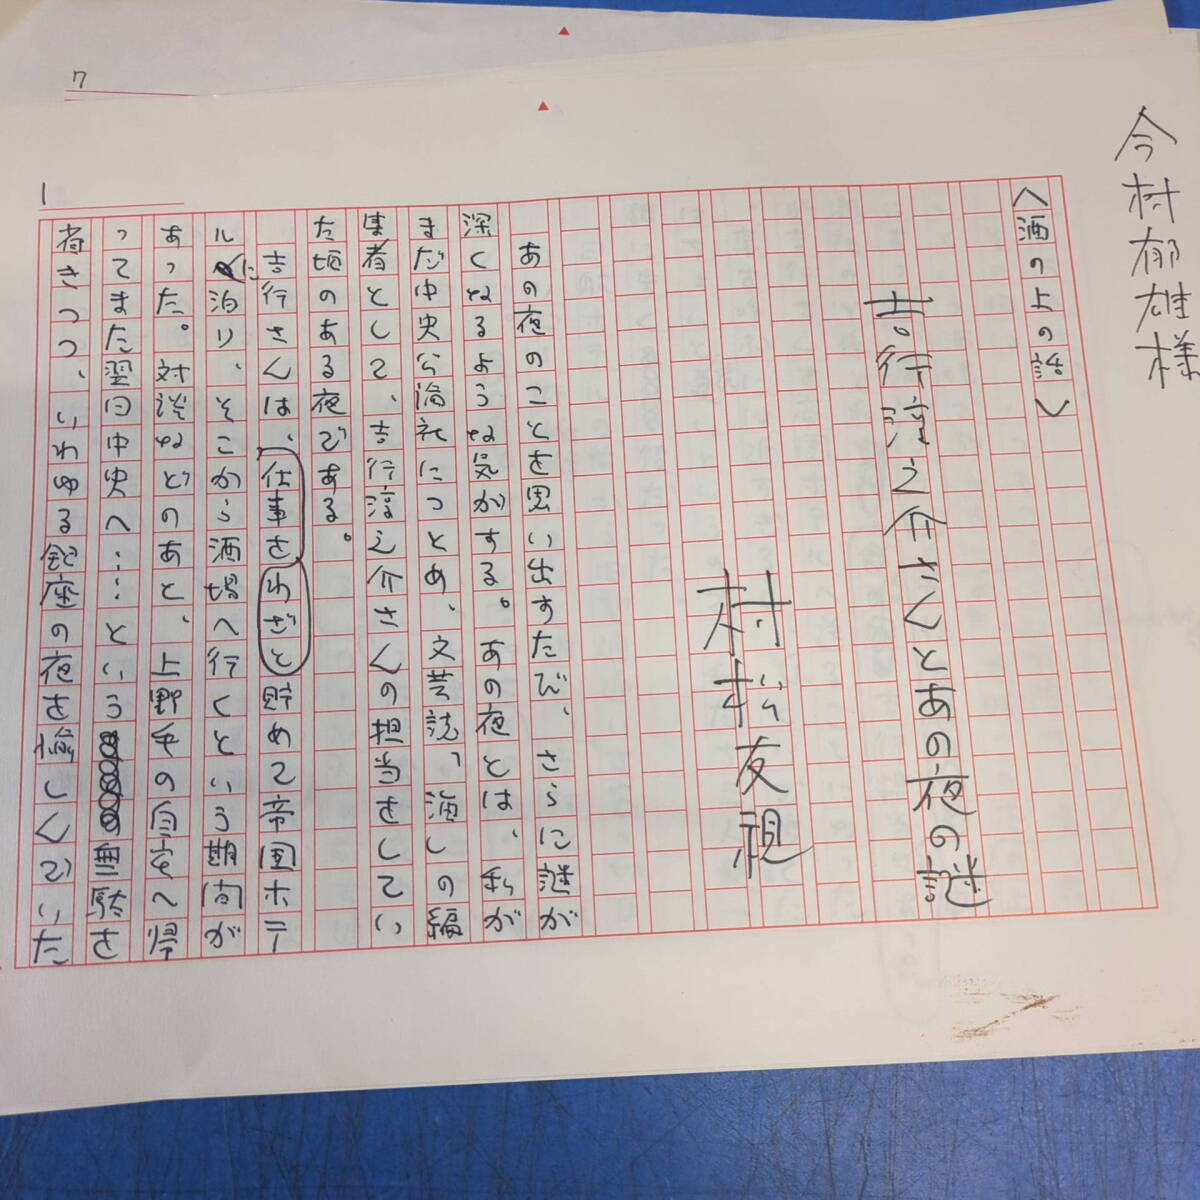 今村郁雄様
〈酒の上の話〉
吉行淳之介さんとあの夜の謎
村松友視
あの夜のことを思い出すたび、さらに謎が
深くなるような気がする。あの夜とは、私が
まだ中央公論社につとめ、文芸誌「海」の編
集者として、吉行淳之介さんの担当をしてい
た頃のある夜である。
吉行さんは、仕事をわざと貯めて帝国ホテ
ルに泊り、そこから酒場へ行くという期間が
あった。対談などのあと、上野毛の自宅へ帰
ってまた翌日中央へ……という無駄を
省きつつ、いわゆる銀座の夜を愉しんでいた
1
7